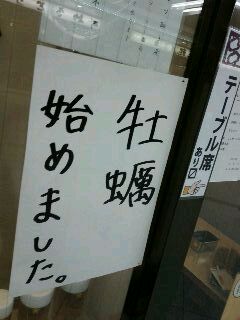 牡蠣
始めました。
テーブル席
あり